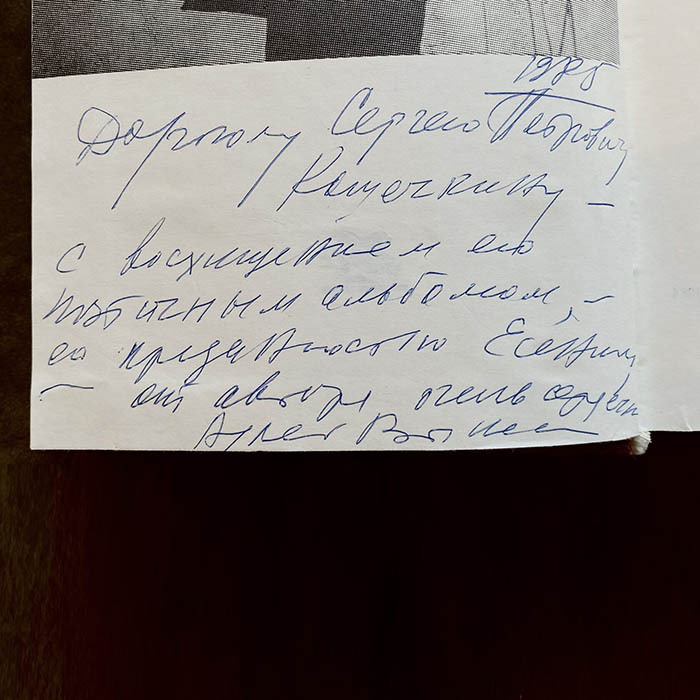 1985
Дорогому Сергею Петровичу
Кошечкину –
с восхищением его
поэтичным альбомом, –
его преданностью Есенину
– от автора очень сердечно